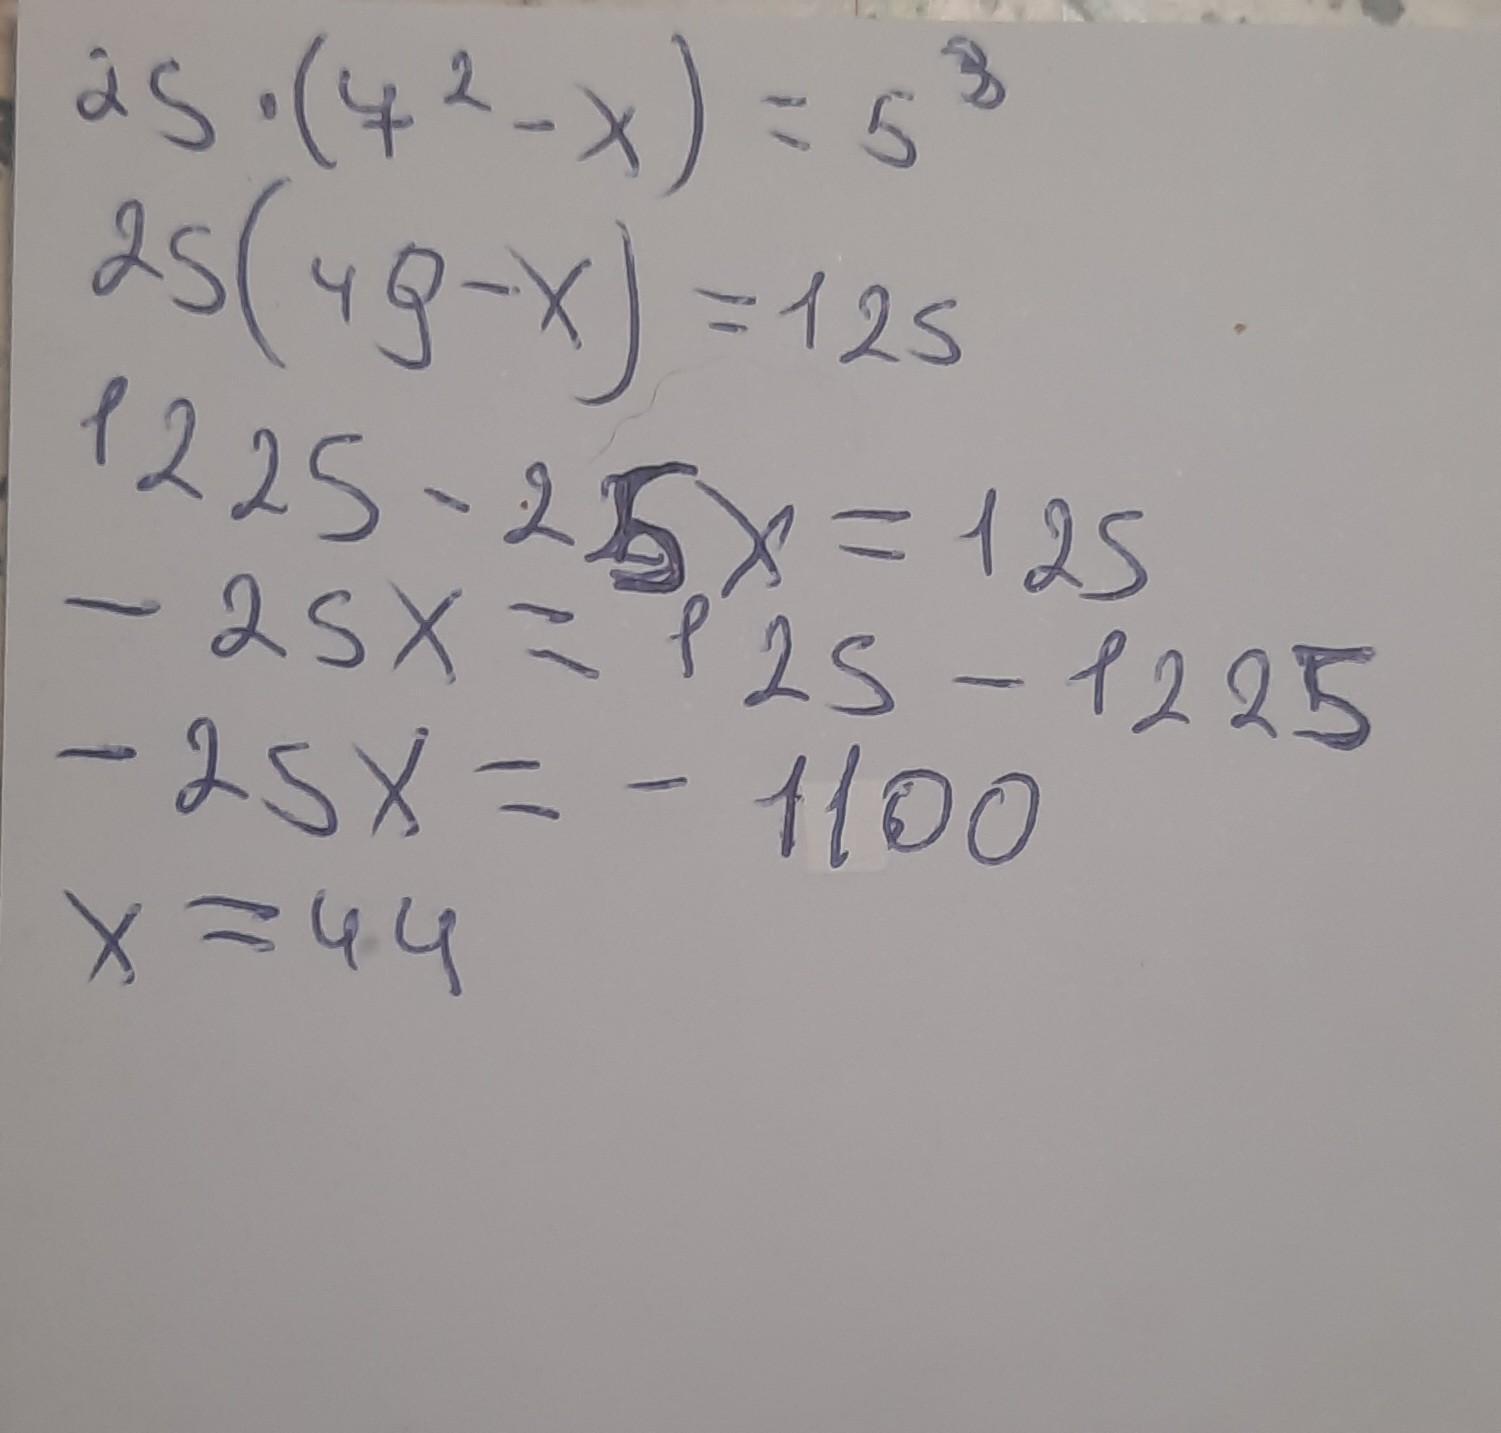 25·(7²-x)=5³
25(49-x)=125
1225-25x=125
-25x=125-1225
-25x=-1100
x=44